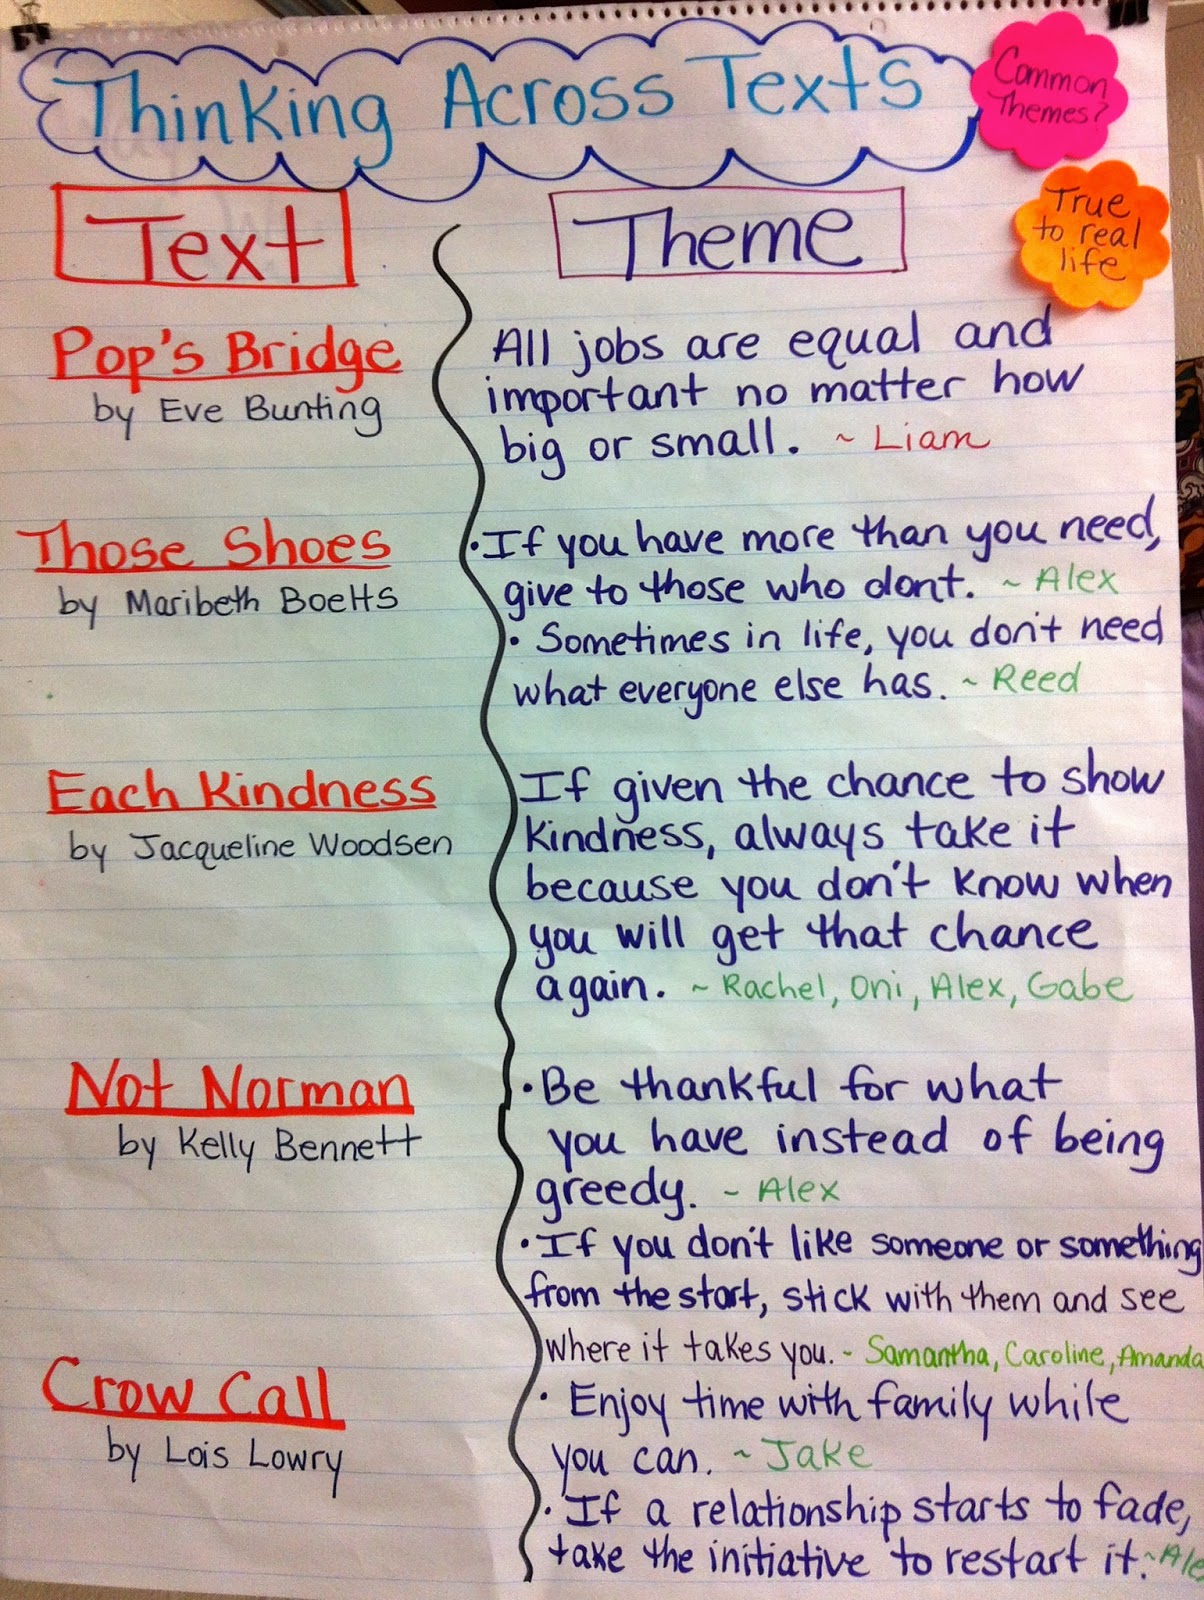 Thinking Across Texts
Common
Themes?
True
to real
life
Text
Theme
Pop's Bridge
by Eve Bunting
All jobs are equal and
important no matter how
big or small. ~ Liam
Those Shoes
by Maribeth Boelts
• If you have more than you need,
give to those who dont. ~ Alex
• Sometimes in life, you don't need
what everyone else has. ~ Reed
Each Kindness
by Jacqueline Woodsen
If given the chance to show
kindness, always take it
because you don't know when
you will get that chance
again. ~ Rachel, Oni, Alex, Gabe
Not Norman
by Kelly Bennett
• Be thankful for what
you have instead of being
greedy. ~ Alex
• If you don't like someone or something
from the start, stick with them and see
where it takes you. ~ Samantha, Caroline, Amanda
Crow Call
by Lois Lowry
• Enjoy time with family while
you can. ~ Jake
• If a relationship starts to fade,
take the initiative to restart it. ~